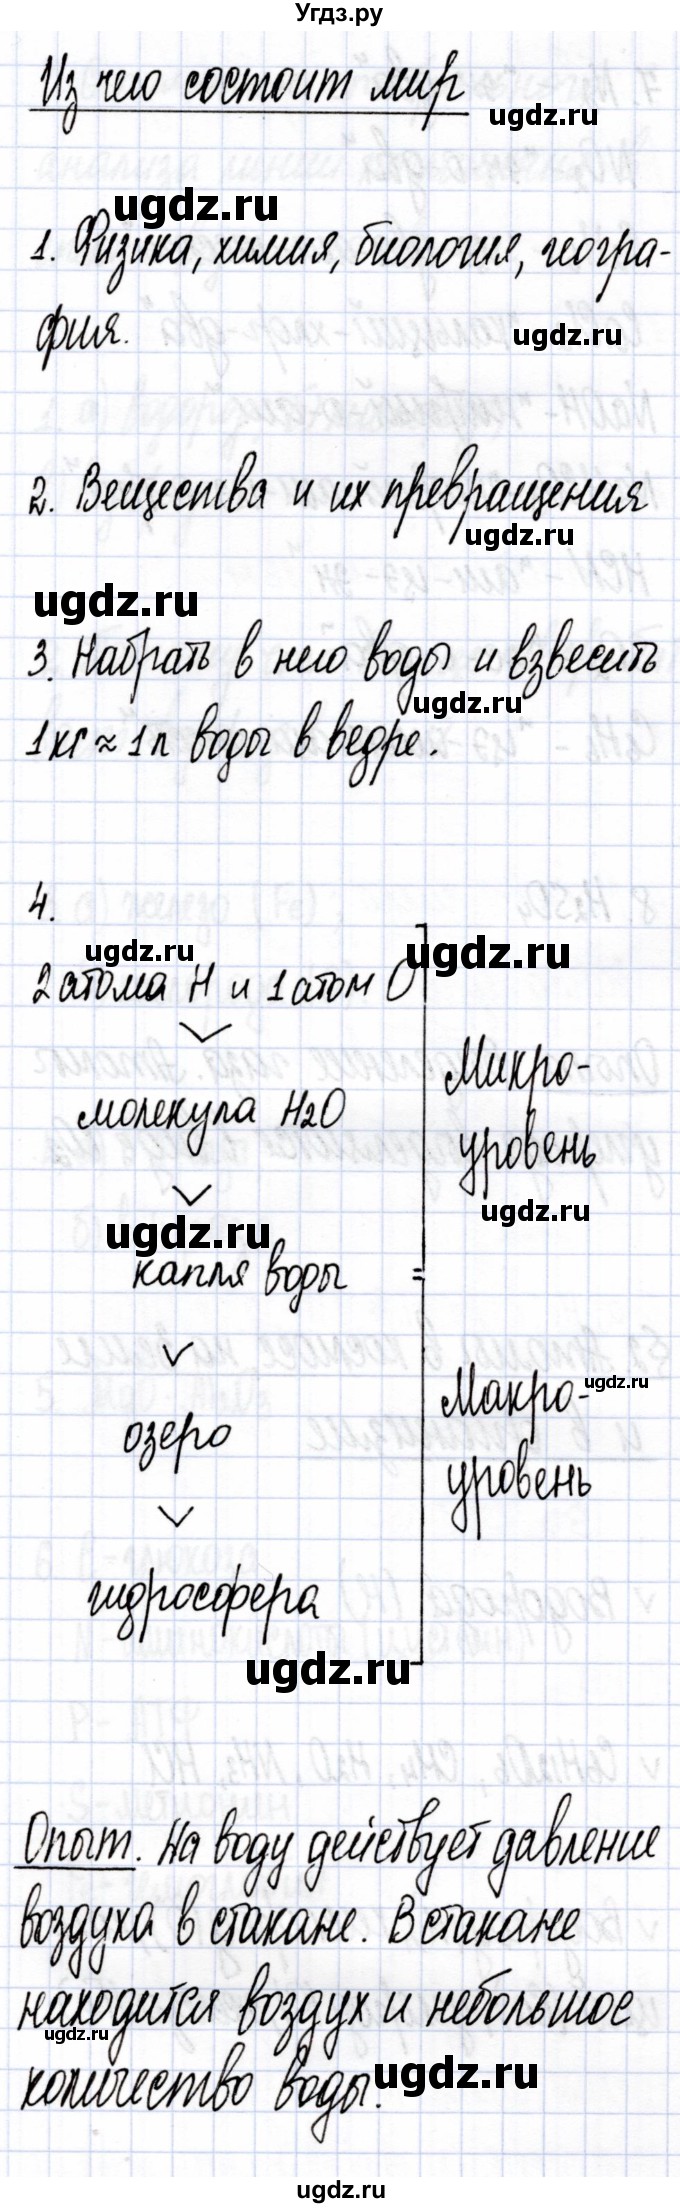 Угдз.ру
Из чего состоит мир
ugdz.ru
ugdz.ru
1. Физика, химия, биология, геогра-
фия.
ugdz.ru
2. Вещества и их превращения
ugdz.ru
ugdz.ru
3. Набрать в него воды и взвесить
ugdz.ru
1 кг ≈ 1 л воды в ведре.
4.
ugdz.ru
ugdz.ru
2 атома H и 1 атом O
Микро-
молекула H2O
уровень
ugdz.ru
ugdz.ru
капля воды
ugdz.ru
Макро-
озеро
уровень
гидросфера
ugdz.ru
Опыт. На воду действует давление
воздуха в стакане. В стакане
находится воздух и небольшое
ugdz.ru
количество воды.
ugdz.ru
ugdz.ru